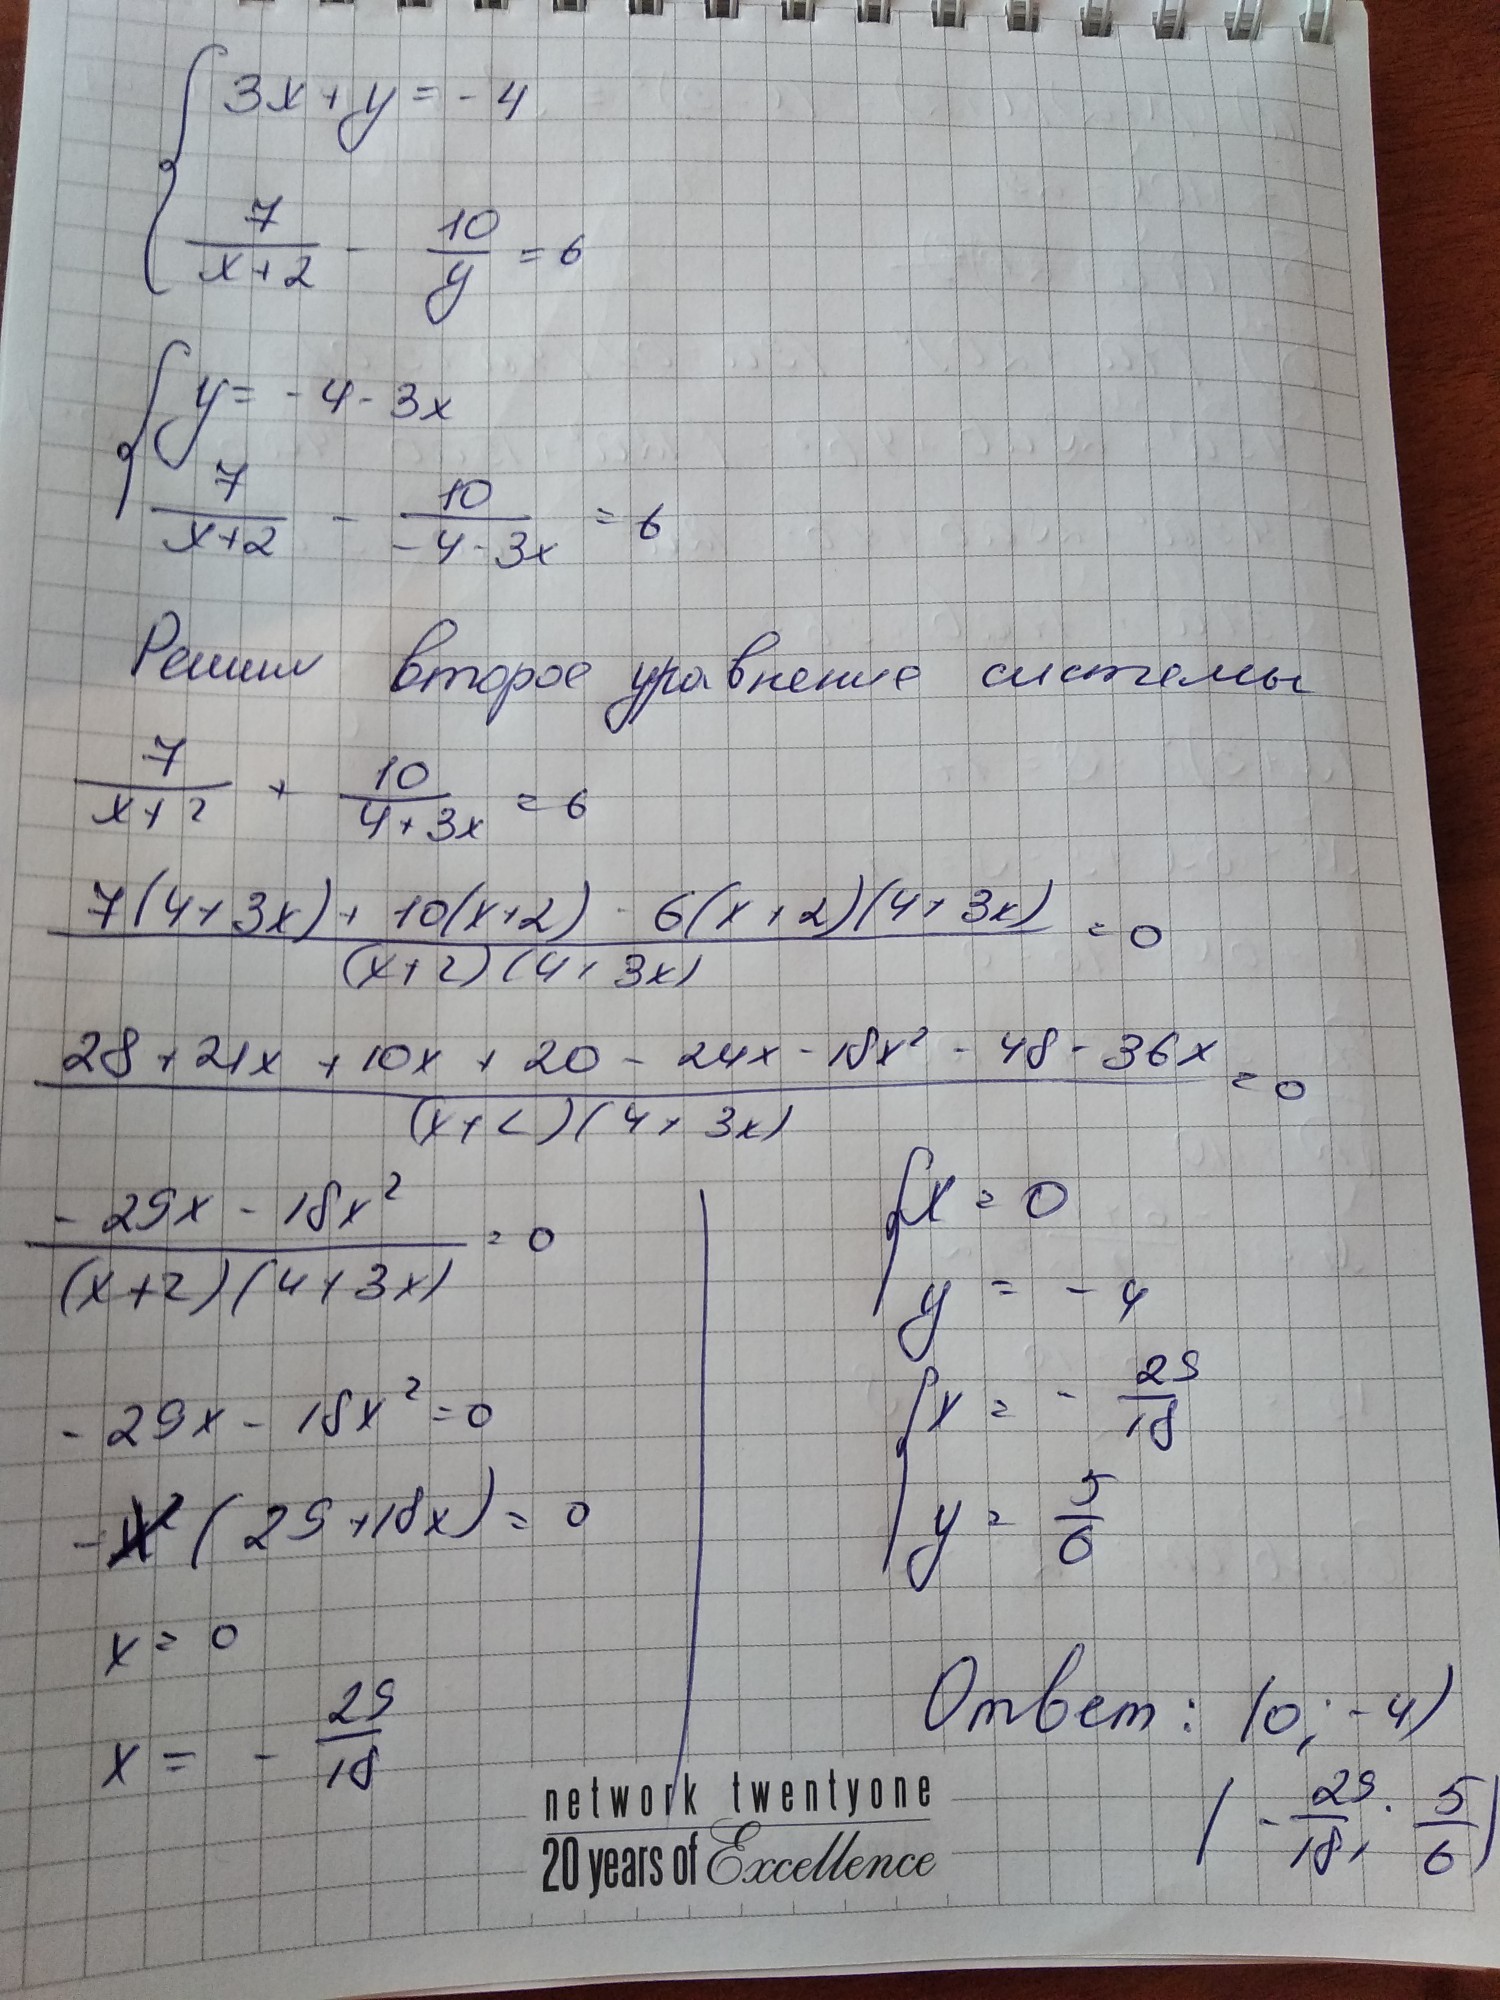 3x + y = -4
7/(x+2) - 10/y = 6
y = -4 - 3x
7/(x+2) - 10/(-4-3x) = 6
Решим второе уравнение системы
7/(x+2) + 10/(4+3x) = 6
(7(4+3x) + 10(x+2) - 6(x+2)(4+3x))/((x+2)(4+3x)) = 0
(28 + 21x + 10x + 20 - 24x - 18x² - 48 - 36x)/((x+2)(4+3x)) = 0
(-29x - 18x²)/((x+2)(4+3x)) = 0
-29x - 18x² = 0
-x (29+18x) = 0
x = 0
x = - 29/18
x = 0
y = -4
x = - 29/18
y = 5/6
Ответ: (0; -4)
(- 29/18; 5/6)
network twentyone
20 years of Excellence